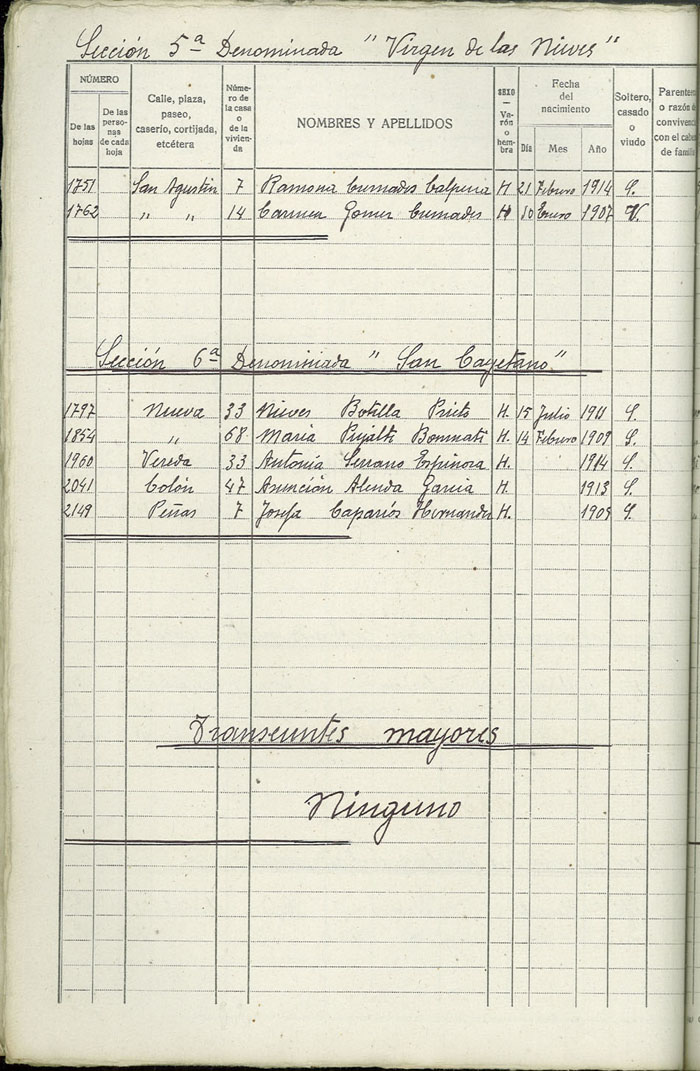 Sección 5ª Denominada "Virgen de las Nieves"
NÚMERO
De las hojas
De las personas de cada hoja
Calle, plaza, paseo, caserío, cortijada, etcétera
Número de la casa o de la vivienda
NOMBRES Y APELLIDOS
SEXO — Varón o hembra
Fecha del nacimiento
Día Mes Año
Soltero, casado o viudo
o razón convivenc con el cabe de famili
1751 San Agustin 7 Ramona Cremades Calpena H. 21 Febrero 1914 S.
1762 " " 14 Carmen Gomez Cremades H 10 Enero 1907 V.
Sección 6ª Denominada "San Cayetano"
1797 Nueva 33 Nieves Botella Prieto H. 15 Julio 1911 S.
1854 " 68 Maria Pujalte Bonmati H. 14 Febrero 1909 S.
1960 Vereda 33 Antonia Serrano Espinosa H. 1914 S.
2041 Colón 47 Asunción Alenda Garcia H. 1913 S.
2149 Peñas 7 Josefa Caparrós Hernandez H. 1909 S.
Transeuntes mayores
Ninguno